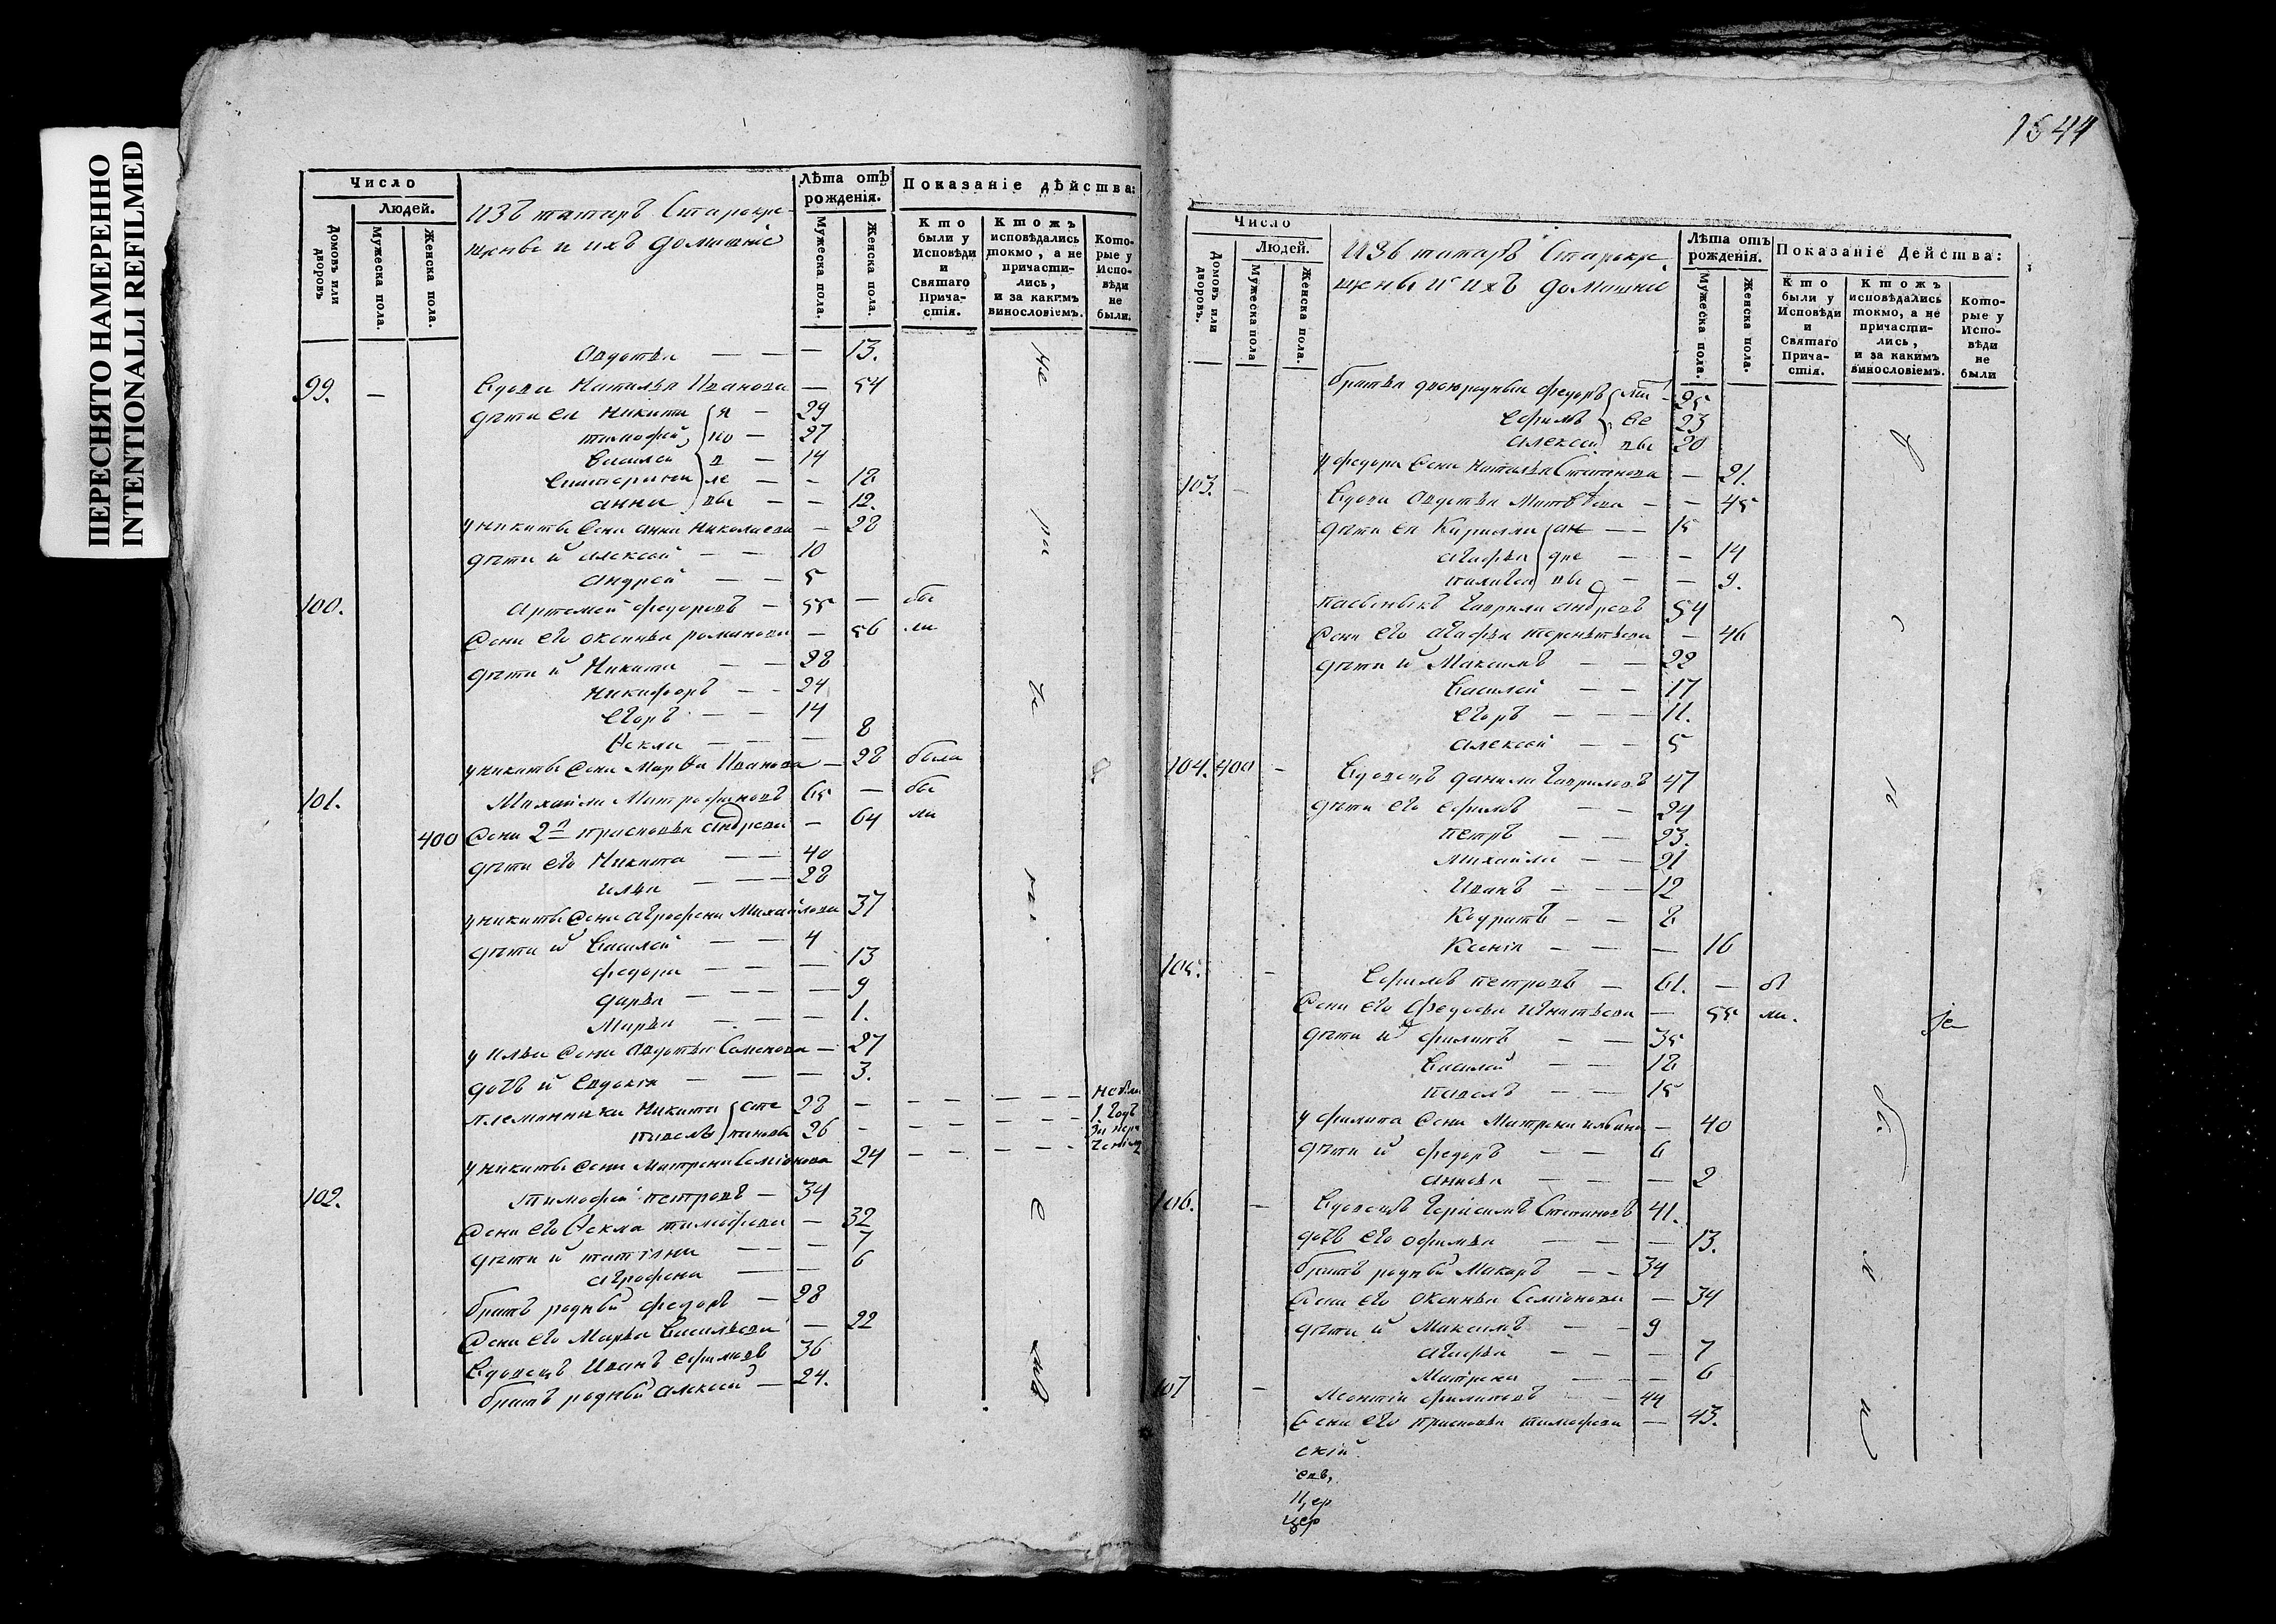 ПЕРЕСНЯТО НАМЕРЕННО
INTENTIONALLI REFILMED
Число
Людей.
Домовъ или дворовъ
Мужеска пола.
Женска пола.
Изъ татаръ Старокре-
щены и ихъ домашніе
Лѣта отъ рожденія.
Мужеска пола.
Женска пола.
Показаніе дѣйства:
Кто были у Исповѣди и Святаго Прича-стія.
Ктожъ исповѣдались токмо, а не причасти-лись, и за какимъ винословіемъ.
Кото-рые у Испо-вѣди не были.
Авдотья — — — 13.
99. — Вдова Наталья Иванова — 54
дѣти ея Никита — 29
тимофей — 27
Василей — 14
Катерина — — 18
анна — — 12.
у никиты жена анна Николаева — 28
дѣти и алексей — — 10
андрей — — 5
100. Артемей федоровъ — 55 — бы
жена его оксинья романова — 56 ли
дѣти и Никита — — 28
Никифоръ — — 24
Егоръ — — 14
Фекла — — — 8
у никиты жена Марфа Иванова — 28 была
101. Михайла Митрофановъ 65 — бы
400 жена 2я прасковья андреева — 64 ли
дѣти его Никита — — 40
илья — — — 28
у никиты жена агрофена Михайлова 37
дѣти и Василей — — 4
федора — — — 13
дарья — — — 9
Марья — — — 1.
у ильи жена авдотья Семенова — 27
дочь и Евдокія — — — 3.
племянники Никита 28 — — — — —
павелъ 26 — — — — —
у никиты жена Матрена Семіонова 24 — — — —
102. тимофей петровъ — 34
жена его Фекла тимофеева — 32
дѣти и татіяна — — — 7
агрофена — — 6
братъ родный федоръ — 28
жена его Марья Васильева — 22
Вдовецъ Иванъ ефимовъ 36
братъ родный алексей — 24.
1544
Число
Людей.
Домовъ или дворовъ.
Мужеска пола
Женска пола.
Изъ татаръ Старокре-
щены и ихъ домашніе
Лѣта отъ рожденія.
Мужеска пола.
Женска пола.
Показаніе Дейсшва:
Кто были у Исповѣди и Святаго Прича-стія.
Ктожъ исповѣдались токмо, а не причасти-лись, и за какимъ винословіемъ.
Кото-рые у Испо-вѣди не были
братья двоюродныи федоръ 25
Ефимъ 23
алексей 20
у федора жена наталья Степанова — 21.
103. — Вдова авдотья Матвѣева — — 45
дѣти ея Кирилла — — 15
агафья — — 14
пелагея — — 9.
пасынокъ гаврила андреевъ 54
жена его агафья терентьева — 46
дѣти и Максимъ — — 22
Василей — — 17
Егоръ — — — 11.
алексей — — 5
104. 400 — Вдовецъ данила гавриловъ 47
дѣти его ефимъ — — 24
петръ — — 23.
Михайла — — 21
Иванъ — — — 12
Кодратъ — — 8
Ксенія — — — 16
105. — Ефимъ петровъ — 61. — бы
жена его Федосья игнатьева — 55 ли.
дѣти и филипъ — — 35
Василей — — 18
павелъ — — 15
у филипа жена Матрена ильина — 40
дѣти и федоръ — — 6
анисья — — — 2
106. — Вдовецъ герасимъ Степановъ 41.
дочь его офимья — — — 13.
братъ родный Макаръ — — 34
жена его оксинья Семіонова — 34
дѣти и Максимъ — — 9
агафья — — — 7
Матрена — — — 6
107 — Леонтій филиповъ — — 44
жена его прасковья тимофеева — 43.
скій